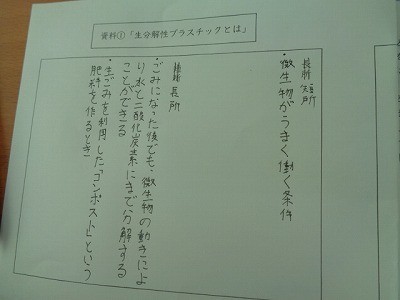 資料①「生分解性プラスチックとは」
短所
・微生物がうまく働く条件
長所
・ごみになった後でも、微生物の働きによ
り水と二酸化炭素にまで分解する
ことができる
・生ごみを利用した「コンポスト」という
肥料を作るとき